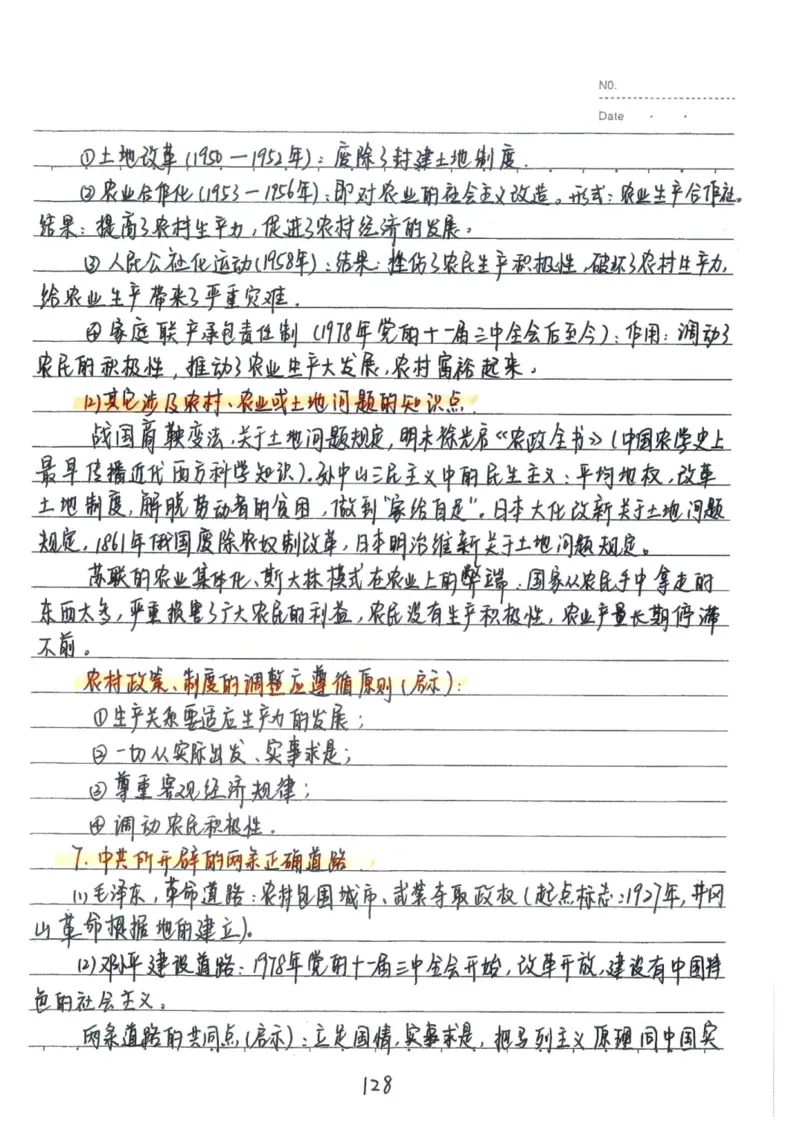 NO.
Date
①土地改革(1950—1952年):废除了封建土地制度.
②农业合作化(1953—1956年):即对农业的社会主义改造。形式:农业生产合作社。
结果:提高了农村生产力,促进了农村经济的发展。
③人民公社化运动(1958年):结果:挫伤了农民生产积极性,破坏了农村生产力,
给农业生产带来了严重灾难.
④家庭联产承包责任制(1978年党的十一届三中全会后至今):作用:调动了
农民的积极性,推动了农业生产大发展,农村富裕起来。
(2)其它涉及农村、农业或土地问题的知识点.
战国商鞅变法,关于土地问题规定,明末徐光启《农政全书》(中国农学史上
最早传播近代西方科学知识).孙中山三民主义中的民生主义:平均地权,改革
土地制度,解脱劳动者的贫困,做到"家给自足"。日本大化改新关于土地问题
规定,1861年俄国废除农奴制改革,日本明治维新关于土地问题规定。
苏联的农业集体化、斯大林模式在农业上的弊端:国家从农民手中拿走的
东西太多,严重损害了广大农民的利益,农民没有生产积极性,农业产量长期停滞
不前。
农村政策、制度的调整应遵循原则(启示):
①生产关系要适应生产力的发展;
②一切从实际出发、实事求是;
③尊重客观经济规律;
④调动农民积极性.
7.中共所开辟的两条正确道路.
(1)毛泽东,革命道路:农村包围城市、武装夺取政权(起点标志:1927年,井冈
山革命根据地的建立)。
(2)邓小平建设道路:1978年党的十一届三中全会开始,改革开放,建设有中国特
色的社会主义。
两条道路的共同点(启示):立足国情,实事求是,把马列主义原理同中国实
128